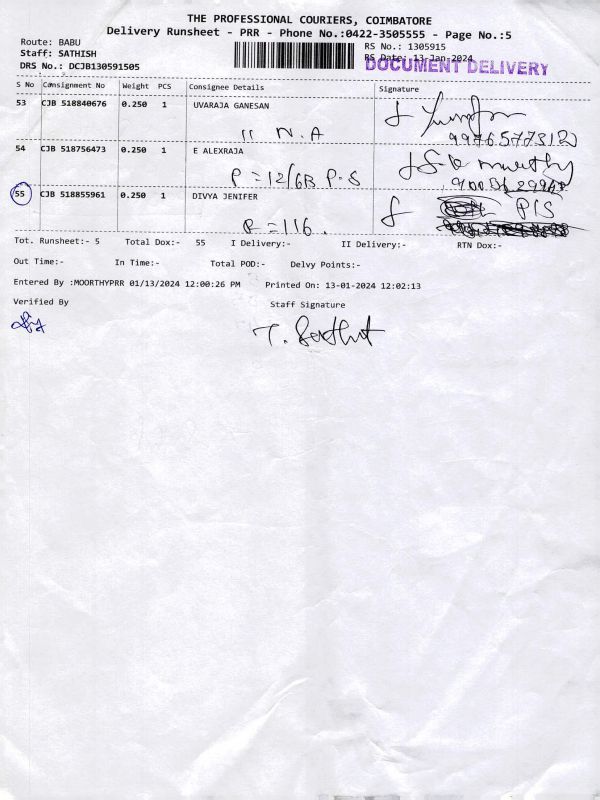 THE PROFESSIONAL COURIERS, COIMBATORE
Delivery Runsheet - PRR - Phone No.:0422-3505555 - Page No.:5
Route: BABU
Staff: SATHISH
DRS No.: DCJB130591505
RS No.: 1305915
RS Date: 13-Jan-2024
DOCUMENT DELIVERY
S No Consignment No Weight PCS Consignee Details Signature
53 CJB 518840676 0.250 1 UVARAJA GANESAN
11 N.A
54 CJB 518756473 0.250 1 E ALEXRAJA
P = 12/6B P.S
55 CJB 518855961 0.250 1 DIVYA JENIFER
P/S
= 116.
Tot. Runsheet:- 5 Total Dox:- 55 I Delivery:- II Delivery:- RTN Dox:-
Out Time:- In Time:- Total POD:- Delvy Points:-
Entered By :MOORTHYPRR 01/13/2024 12:00:26 PM Printed On: 13-01-2024 12:02:13
Verified By Staff Signature